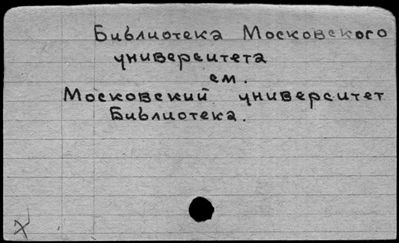 Библиотека Московского
университета
см.
Московский университет
Библиотека.